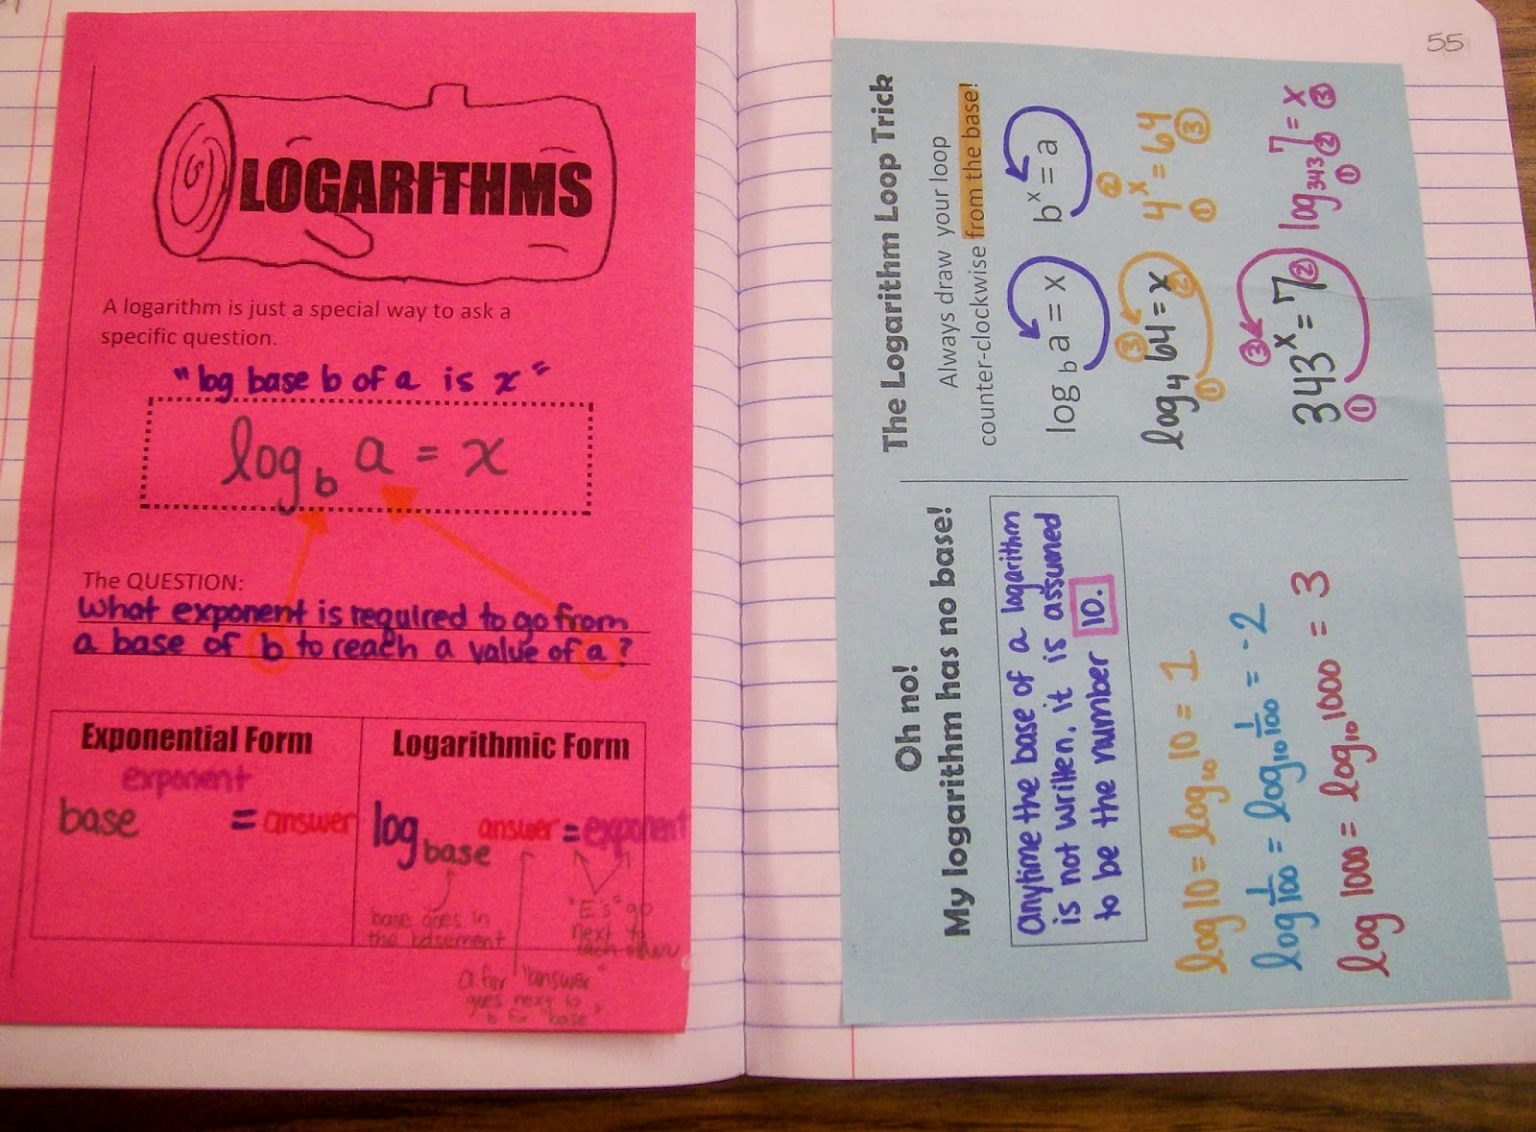 LOGARITHMS
A logarithm is just a special way to ask a
specific question.
"log base b of a is x"
log_b a = x
The QUESTION:
What exponent is required to go from
a base of b to reach a value of a?
Exponential Form
base^exponent = answer
Logarithmic Form
log_base answer = exponent
base goes in
the basement
"E's" go
next to
each other
a for "answer"
goes next to
b for "base"
55
Oh no!
My logarithm has no base!
anytime the base of a logarithm
is not written, it is assumed
to be the number 10.
log 10 = log_10 10 = 1
log 1/100 = log_10 1/100 = -2
log 1000 = log_10 1000 = 3
The Logarithm Loop Trick
Always draw your loop
counter-clockwise from the base!
log_b a = x b^x = a
log_4 64 = x 4^x = 64
① ③ ② ① ② ③
343^x = 7 log_343 7 = x
① ③ ② ① ② ③